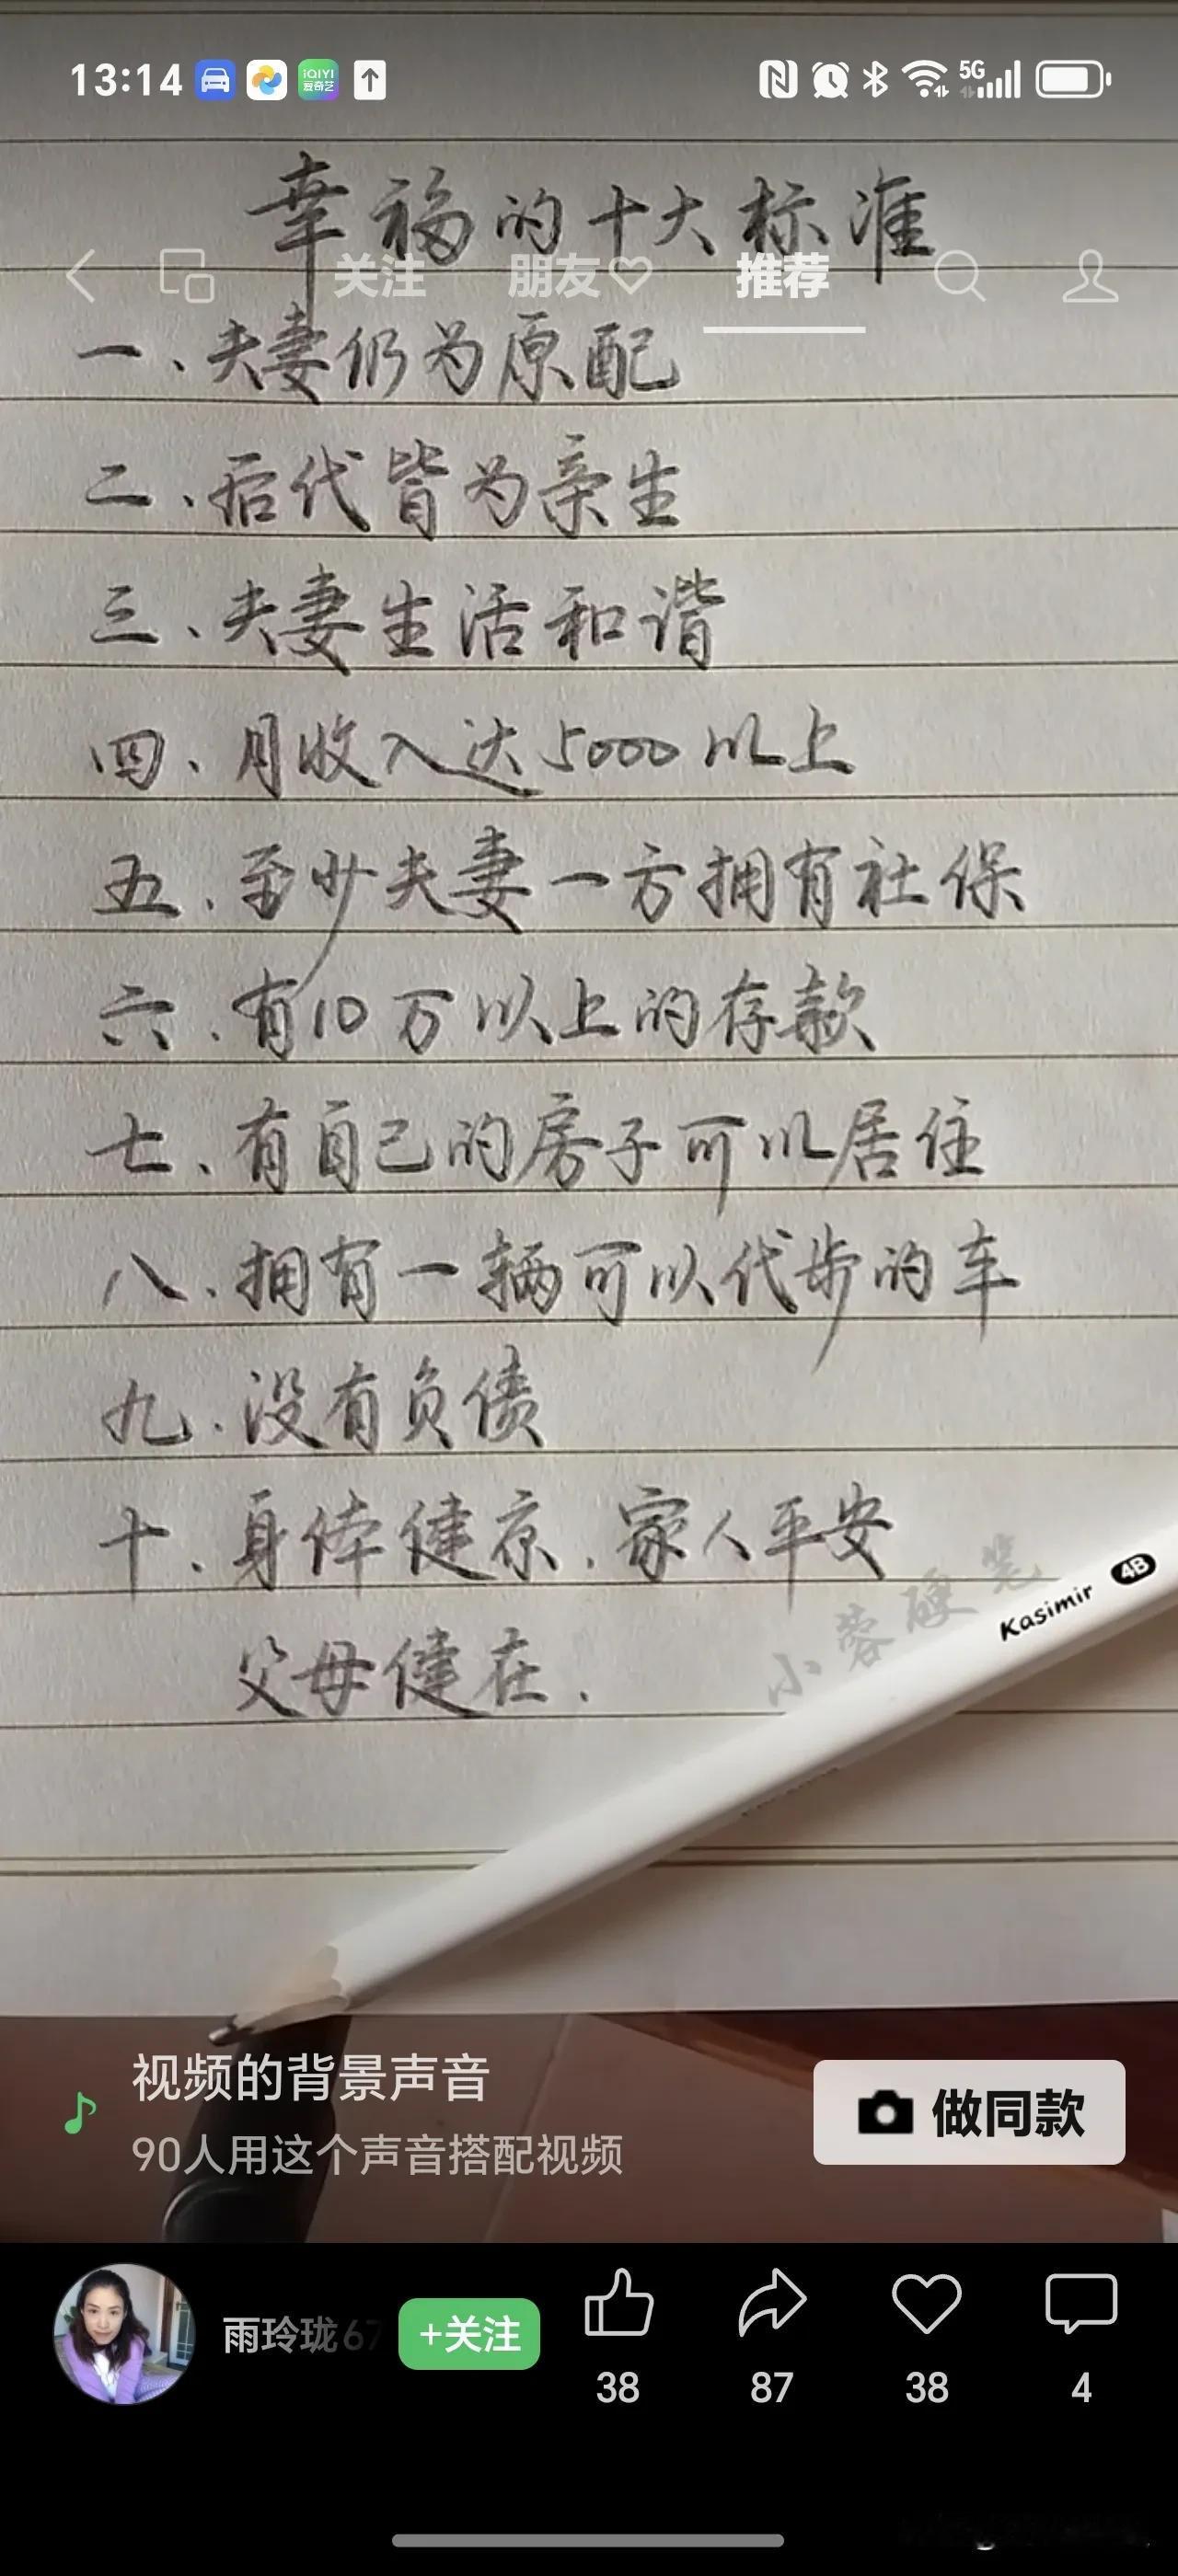 13:14
iQIYI
爱奇艺
5G
幸福的十大标准
关注 朋友 推荐
一、夫妻仍为原配
二、后代皆为亲生
三、夫妻生活和谐
四、月收入达5000以上
五、至少夫妻一方拥有社保
六、有10万以上的存款
七、有自己的房子可以居住
八、拥有一辆可以代步的车
九、没有负债
十、身体健康,家人平安
父母健在.
小蓉硬笔
Kasimir 4B
视频的背景声音
90人用这个声音搭配视频
做同款
雨玲珑67
+关注
38 87 38 4